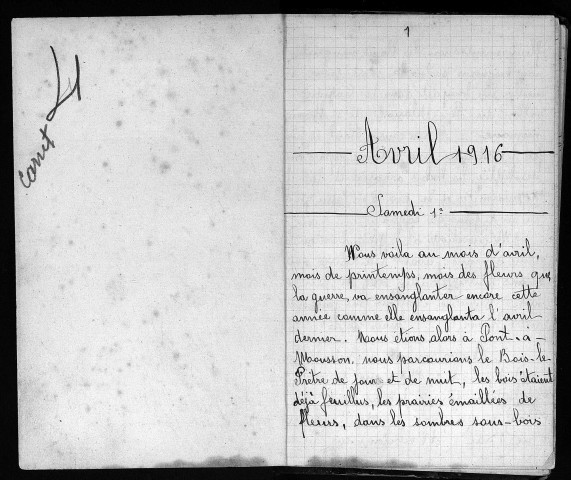 Carnet 4
1
Avril 1916
Samedi 1er
Nous voila au mois d'avril,
mois de printemps, mois des fleurs que
la guerre va ensanglanter encore cette
année comme elle ensanglanta l'avril
dernier. Nous etions alors à Pont-à-
Mousson, nous parcourions le Bois-le-
Prêtre de jour et de nuit, les bois étaient
déjà feuillus, les prairies émaillées de
fleurs, dans les sombres sous-bois